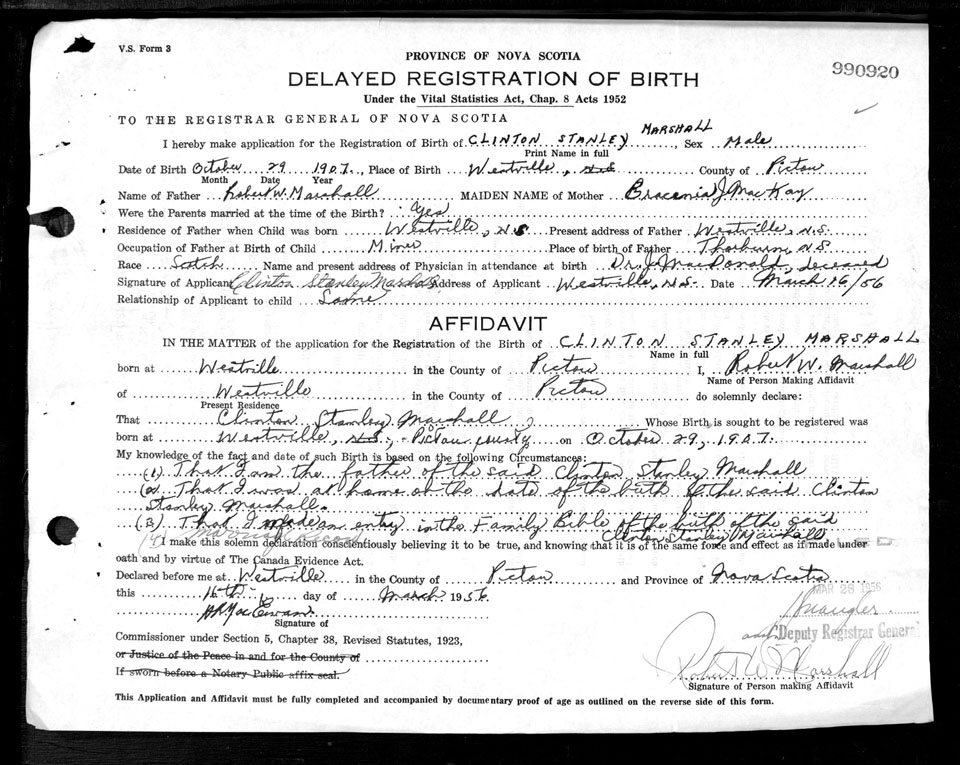 V.S. Form 3
PROVINCE OF NOVA SCOTIA
990920
DELAYED REGISTRATION OF BIRTH
Under the Vital Statistics Act, Chap. 8 Acts 1952
TO THE REGISTRAR GENERAL OF NOVA SCOTIA
I hereby make application for the Registration of Birth of CLINTON STANLEY MARSHALL, Sex Male
Print Name in full
Date of Birth October 29 1907, Place of Birth Westville, N.S. County of Pictou
Month Date Year
Name of Father Robert W. Marshall MAIDEN NAME of Mother Bracenia J. MacKay
Were the Parents married at the time of the Birth? Yes
Residence of Father when Child was born Westville, N.S. Present address of Father Westville, N.S.
Occupation of Father at Birth of Child Miner Place of birth of Father Thorburn, N.S.
Race Scotch Name and present address of Physician in attendance at birth Dr. J. MacDonald, deceased
Signature of Applicant Clinton Stanley Marshall Address of Applicant Westville, N.S. Date March 16/56
Relationship of Applicant to child Same
AFFIDAVIT
IN THE MATTER of the application for the Registration of the Birth of CLINTON STANLEY MARSHALL
Name in full
born at Westville in the County of Pictou I, Robert W. Marshall
Name of Person Making Affidavit
of Westville in the County of Pictou do solemnly declare:
Present Residence
That Clinton Stanley Marshall Whose Birth is sought to be registered was
born at Westville, N.S., Pictou county on October 29, 1907.
My knowledge of the fact and date of such Birth is based on the following Circumstances:
(1) That I am the father of the said Clinton Stanley Marshall
(2) That I was at home at the date of the birth of the said Clinton
Stanley Marshall.
(3) That I made an entry in the Family Bible of the birth of the said
Clinton Stanley Marshall
(4) Marriage Record
I make this solemn declaration conscientiously believing it to be true, and knowing that it is of the same force and effect as if made under
oath and by virtue of The Canada Evidence Act.
Declared before me at Westville in the County of Pictou and Province of Nova Scotia
this 16th day of March 1956
MAR 28 1956
Signature of
Commissioner under Section 5, Chapter 38, Revised Statutes, 1923,
Deputy Registrar General
or Justice of the Peace in and for the County of
If sworn before a Notary Public affix seal.
Robert W. Marshall
Signature of Person making Affidavit
This Application and Affidavit must be fully completed and accompanied by documentary proof of age as outlined on the reverse side of this form.